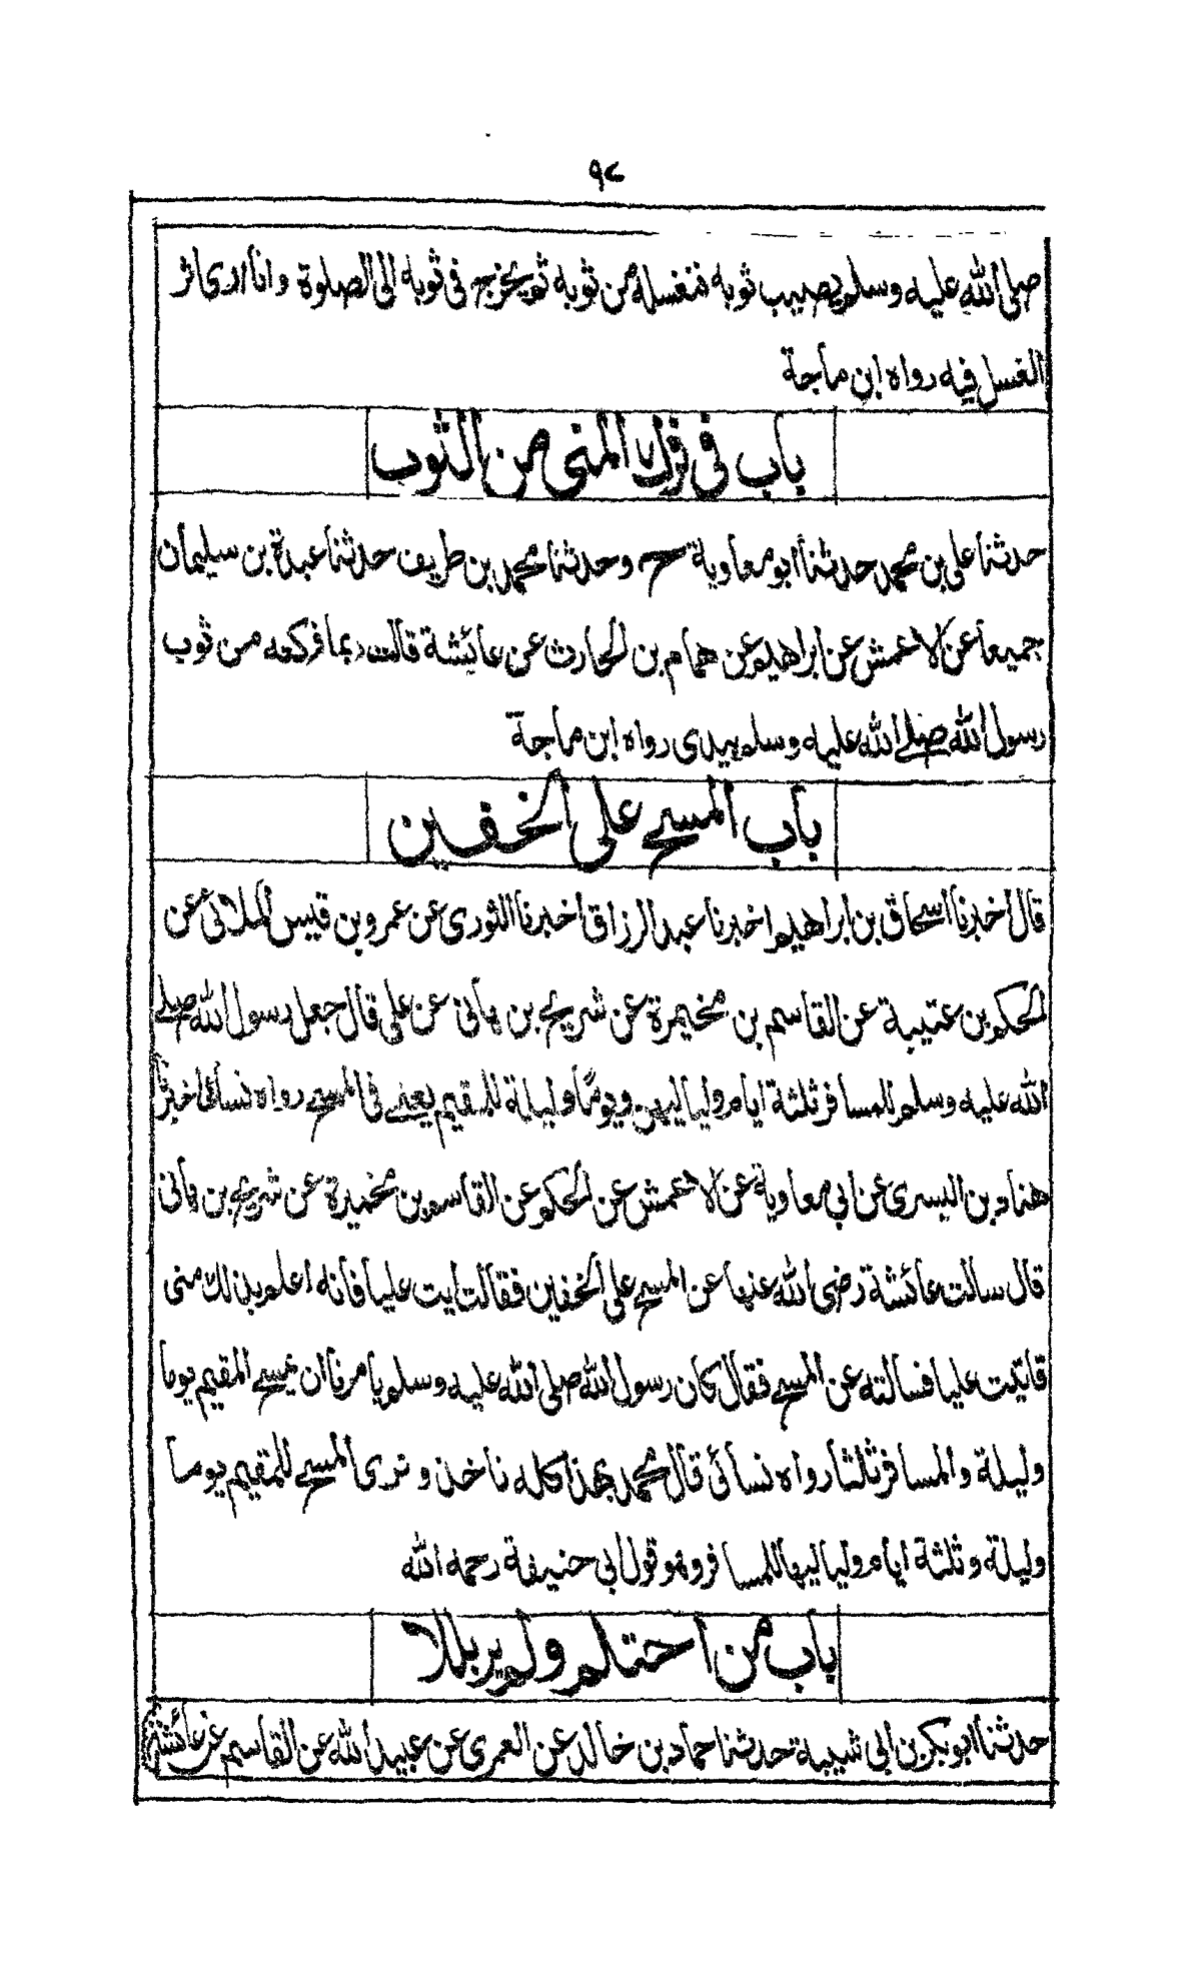 ٩٨
صلى الله عليه وسلم يصيب ثوبه فنغسله من ثوبه ثم يخرج فى ثوبه الى الصلوة وانا ارى اثر
الغسل فيه رواه ابن ماجة
باب فى فرك المنى من الثوب
حدثنا على بن محمد حدثنا ابو معاوية ح وحدثنا محمد بن طريف حدثنا عبدة بن سليمان
جميعا عن الاعمش عن ابراهيم عن همام بن الحارث عن عائشة قالت ربما فركته من ثوب
رسول الله صلے الله عليه وسلم بيدى رواه ابن ماجة
باب المسح على الخفين
قال اخبرنا اسحاق بن ابراهيم اخبرنا عبد الرزاق اخبرنا الثورى عن عمرو بن قيس الملائى عن
الحكم بن عتيبة عن القاسم بن مخيمرة عن شريح بن هانى عن على قال جعل رسول الله صلے
الله عليه وسلم للمسافر ثلثة ايام ولياليهن ويوما وليلة للمقيم يعنے فى المسح رواه نسائى اخبرنا
هناد بن السرى عن ابى معاوية عن الاعمش عن الحكم عن القاسم بن مخيمرة عن شريح بن هانى
قال سالت عائشة رضى الله عنها عن المسح على الخفين فقالت ايت عليا فانه اعلم بذلك منى
فاتيت عليا فسالته عن المسح فقال كان رسول الله صلى الله عليه وسلم يامرنا ان يمسح المقيم يوما
وليلة والمسافر ثلثا رواه نسائى قال محمد بهذا كله ناخذ ونرى المسح للمقيم يوما
وليلة وثلثة ايام ولياليها للمسافر وهو قول ابى حنيفة رحمه الله
باب من احتلم ولم ير بللا
حدثنا ابو بكر بن ابى شيبة حدثنا حماد بن خالد عن العمرى عن عبيد الله عن القاسم عن عائشة